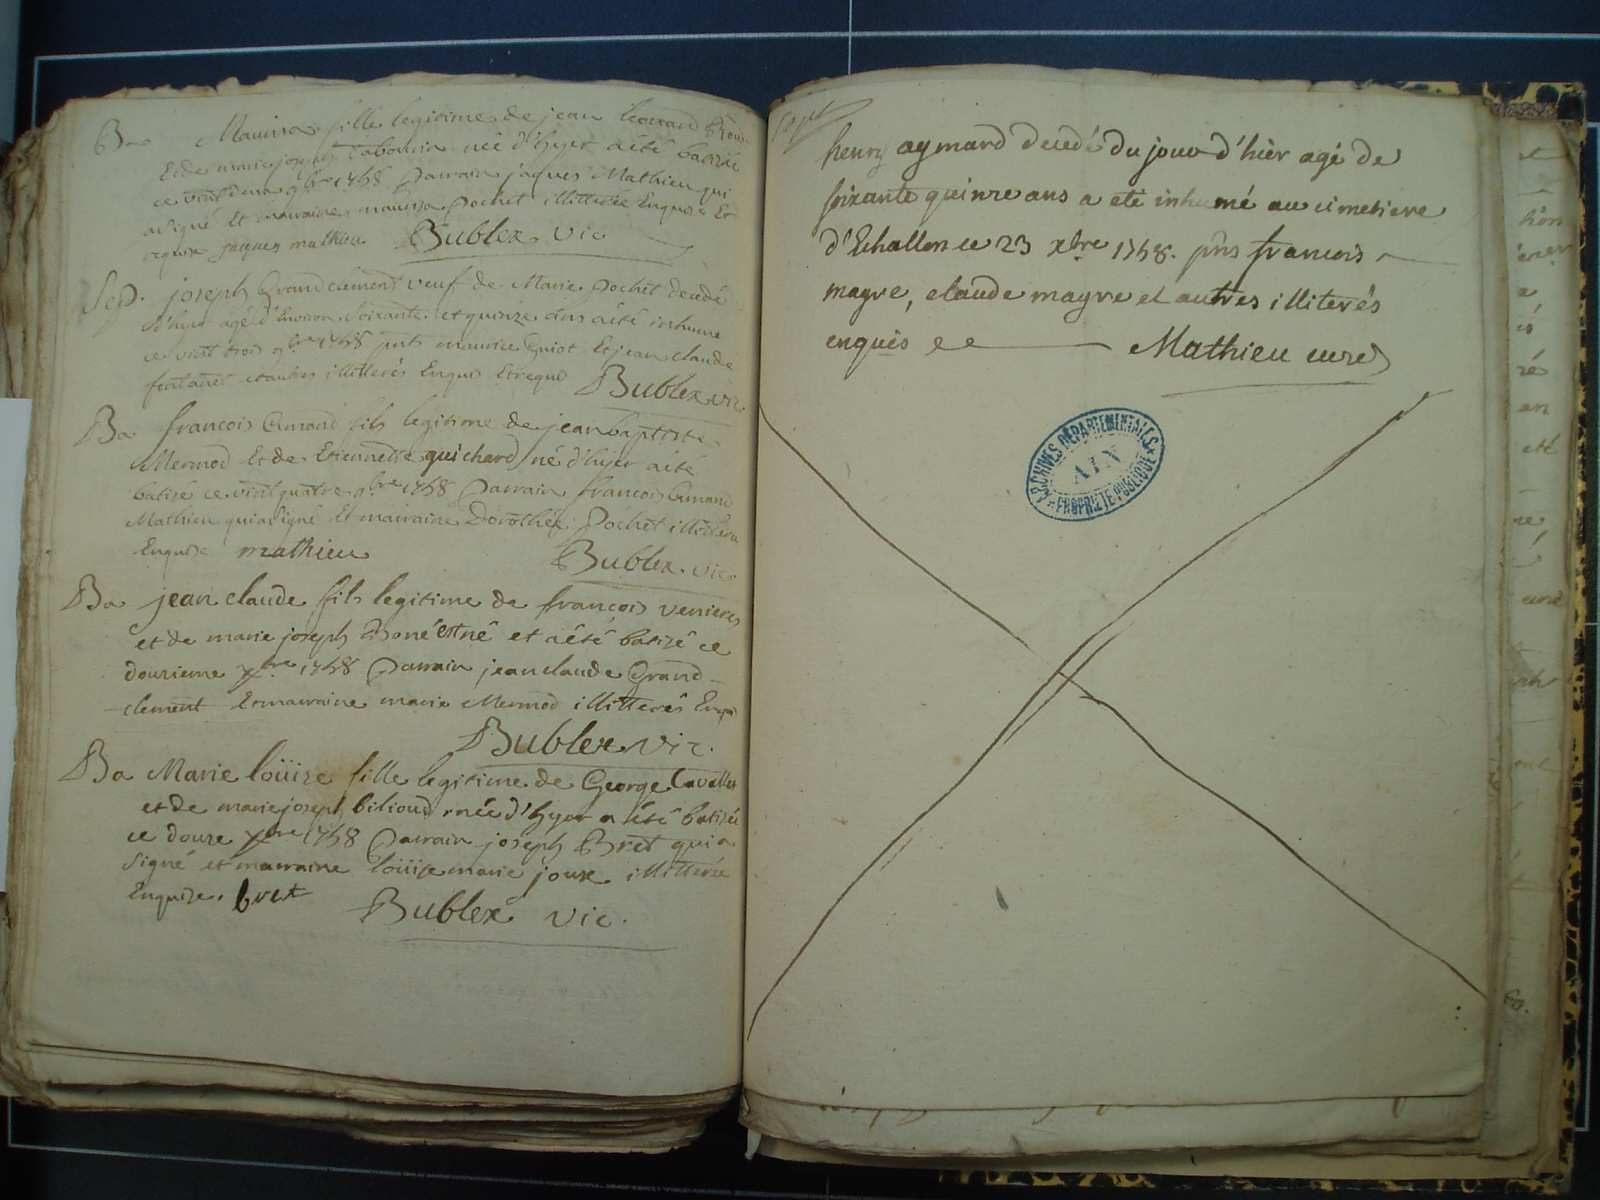 Ba Maurisa fille legitime de jean
Et de marie joseph Tabourin née d'hyer a été batisée
ce vint deux 9bre 1758 Parrain jaques Mathieu qui
a signé Et marraine maurisa Pochet illitterée Enquise Et
requise jaques mathieu Bublex vic
Sep. joseph Grandclement veuf de Marie Pochet decedé
d'hyer agé d'Environ soixante et quinze ans a été inhumé
ce vint trois 9bre 1758 pnts maurice Guiot Et jean claude
fontanet et autres illitterés Enquis Et requis Bublex vic.
Ba françois Amand fils legitime de jean baptiste
Mermod Et de Etiennette guichard né d'hyer a été
batisé ce vint quatre 9bre 1758 Parrain françois Amand
Mathieu qui a signé Et mairaine Dorothée Pochet
Enquise mathieu Bublex. vic
Ba jean claude fils legitime de françois
et de marie joseph est né et a été batizé ce
douzieme Xbre 1758 Parrain jean claude Grand-
clement Et marraine marie Mermod illitterés Enquis
Bublex vic.
Ba Marie loüize fille legitime de George Cavallet
et de marie joseph bilioud née d'hyer a été batisée
ce douze Xbre 1758 Parrain joseph Bret qui a
signé et marraine loüise marie joux illitterée
Enquize. bret Bublex vic.
Sept
henry aymard decedé du jour d'hier agé de
soixante quinze ans a eté inhumé au cimetiere
d'Echallon ce 23 xbre 1758. pns francois
magre, claude magre et autres illiterés
enquis Mathieu curé
ARCHIVES DÉPARTEMENTALES
AIN
PROPRIÉTÉ PUBLIQUE